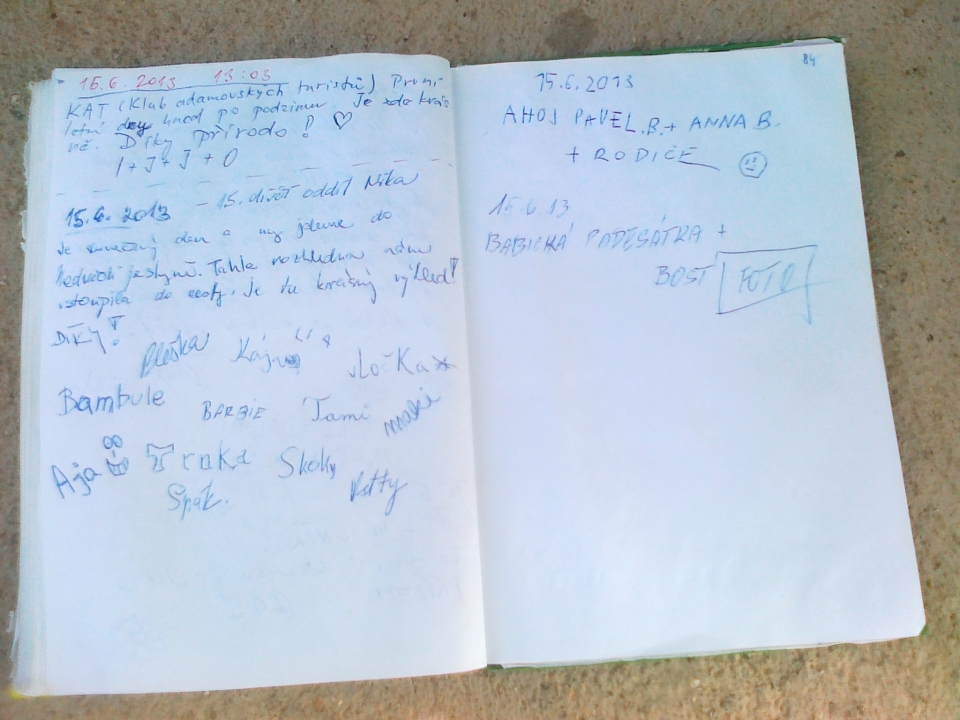 15.6.2013 13:03
KAT (Klub adamovských turistů) První
letní dny hned po podzimu. Je zde krás
ně. Díky přírodo! ♡
I + J + J + O
15.6. 2013 - 15. dívčí oddíl Nika
Je sluneční den a my jdeme do
jeskyně. Tahle rozhledna nám
vstoupila do cesty. Je tu krásný výhled!
DÍKY!
Bleška Káju
vločka
Bambule BARBIE Tami
Aja Trnka
Spák. Katty
84
15.6.2013
AHOJ PAVEL.B.+ ANNA B.
+ RODIČE
15.6.13
BABICKÁ PADESÁTKA +
BOST FOTO